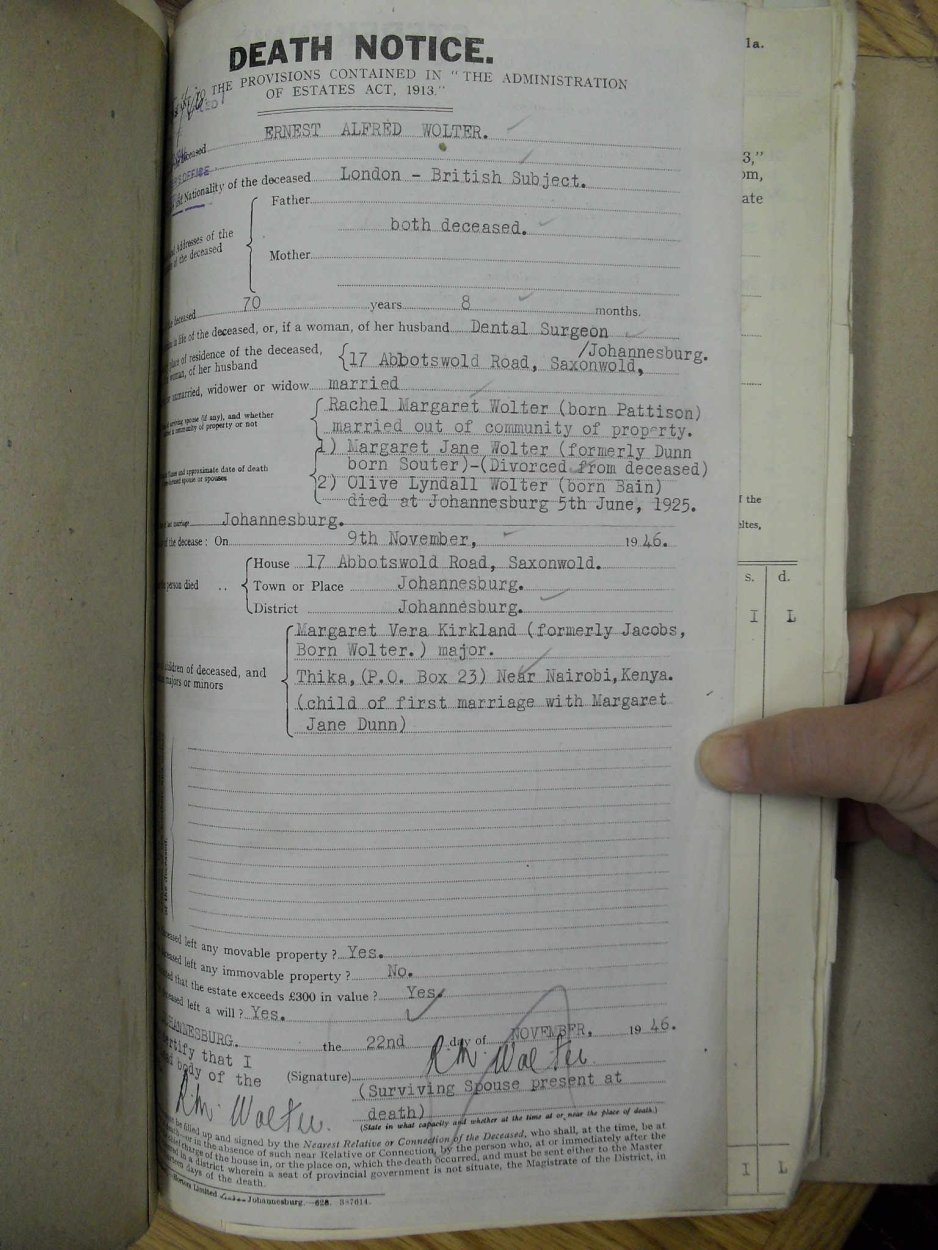 DEATH NOTICE.
THE PROVISIONS CONTAINED IN "THE ADMINISTRATION
OF ESTATES ACT, 1913."
ERNEST ALFRED WOLTER.
deceased
OFFICE
Nationality of the deceased London - British Subject.
Father
Addresses of the
of the deceased
both deceased.
Mother
deceased 70 years 8 months.
life of the deceased, or, if a woman, of her husband Dental Surgeon
place of residence of the deceased,
woman, of her husband
/Johannesburg.
17 Abbotswold Road, Saxonwold,
unmarried, widower or widow married
surviving spouse (if any), and whether
community of property or not
Rachel Margaret Wolter (born Pattison)
married out of community of property.
and approximate date of death
spouse or spouses
1) Margaret Jane Wolter (formerly Dunn
born Souter)-(Divorced from deceased)
2) Olive Lyndall Wolter (born Bain)
died at Johannesburg 5th June, 1925.
Johannesburg.
of the decease: On 9th November, 1946.
person died ..
House 17 Abbotswold Road, Saxonwold.
Town or Place Johannesburg.
District Johannesburg.
children of deceased, and
majors or minors
Margaret Vera Kirkland (formerly Jacobs,
Born Wolter.) major.
Thika, (P.O. Box 23) Near Nairobi, Kenya.
(child of first marriage with Margaret
Jane Dunn)
left any movable property? Yes.
left any immovable property? No.
that the estate exceeds £300 in value? Yes.
left a will? Yes.
JOHANNESBURG. the 22nd day of NOVEMBER, 1946.
certify that I
body of the
(Signature) R.M. Wolter
(Surviving Spouse present at
death)
R.M. Wolter.
(State in what capacity and whether at the time at or near the place of death.)
be filled up and signed by the Nearest Relative or Connection of the Deceased, who shall, at the time, be at
or in the absence of such near Relative or Connection, by the person who, at or immediately after the
charge of the house in, or the place on, which the death occurred, and must be sent either to the Master
in a district wherein a seat of provincial government is not situate, the Magistrate of the District, in
days of the death.
Limited Johannesburg.—628. 387614.
1a.
3,"
om,
ate
f the
eltes,
s. d.
I L
I L